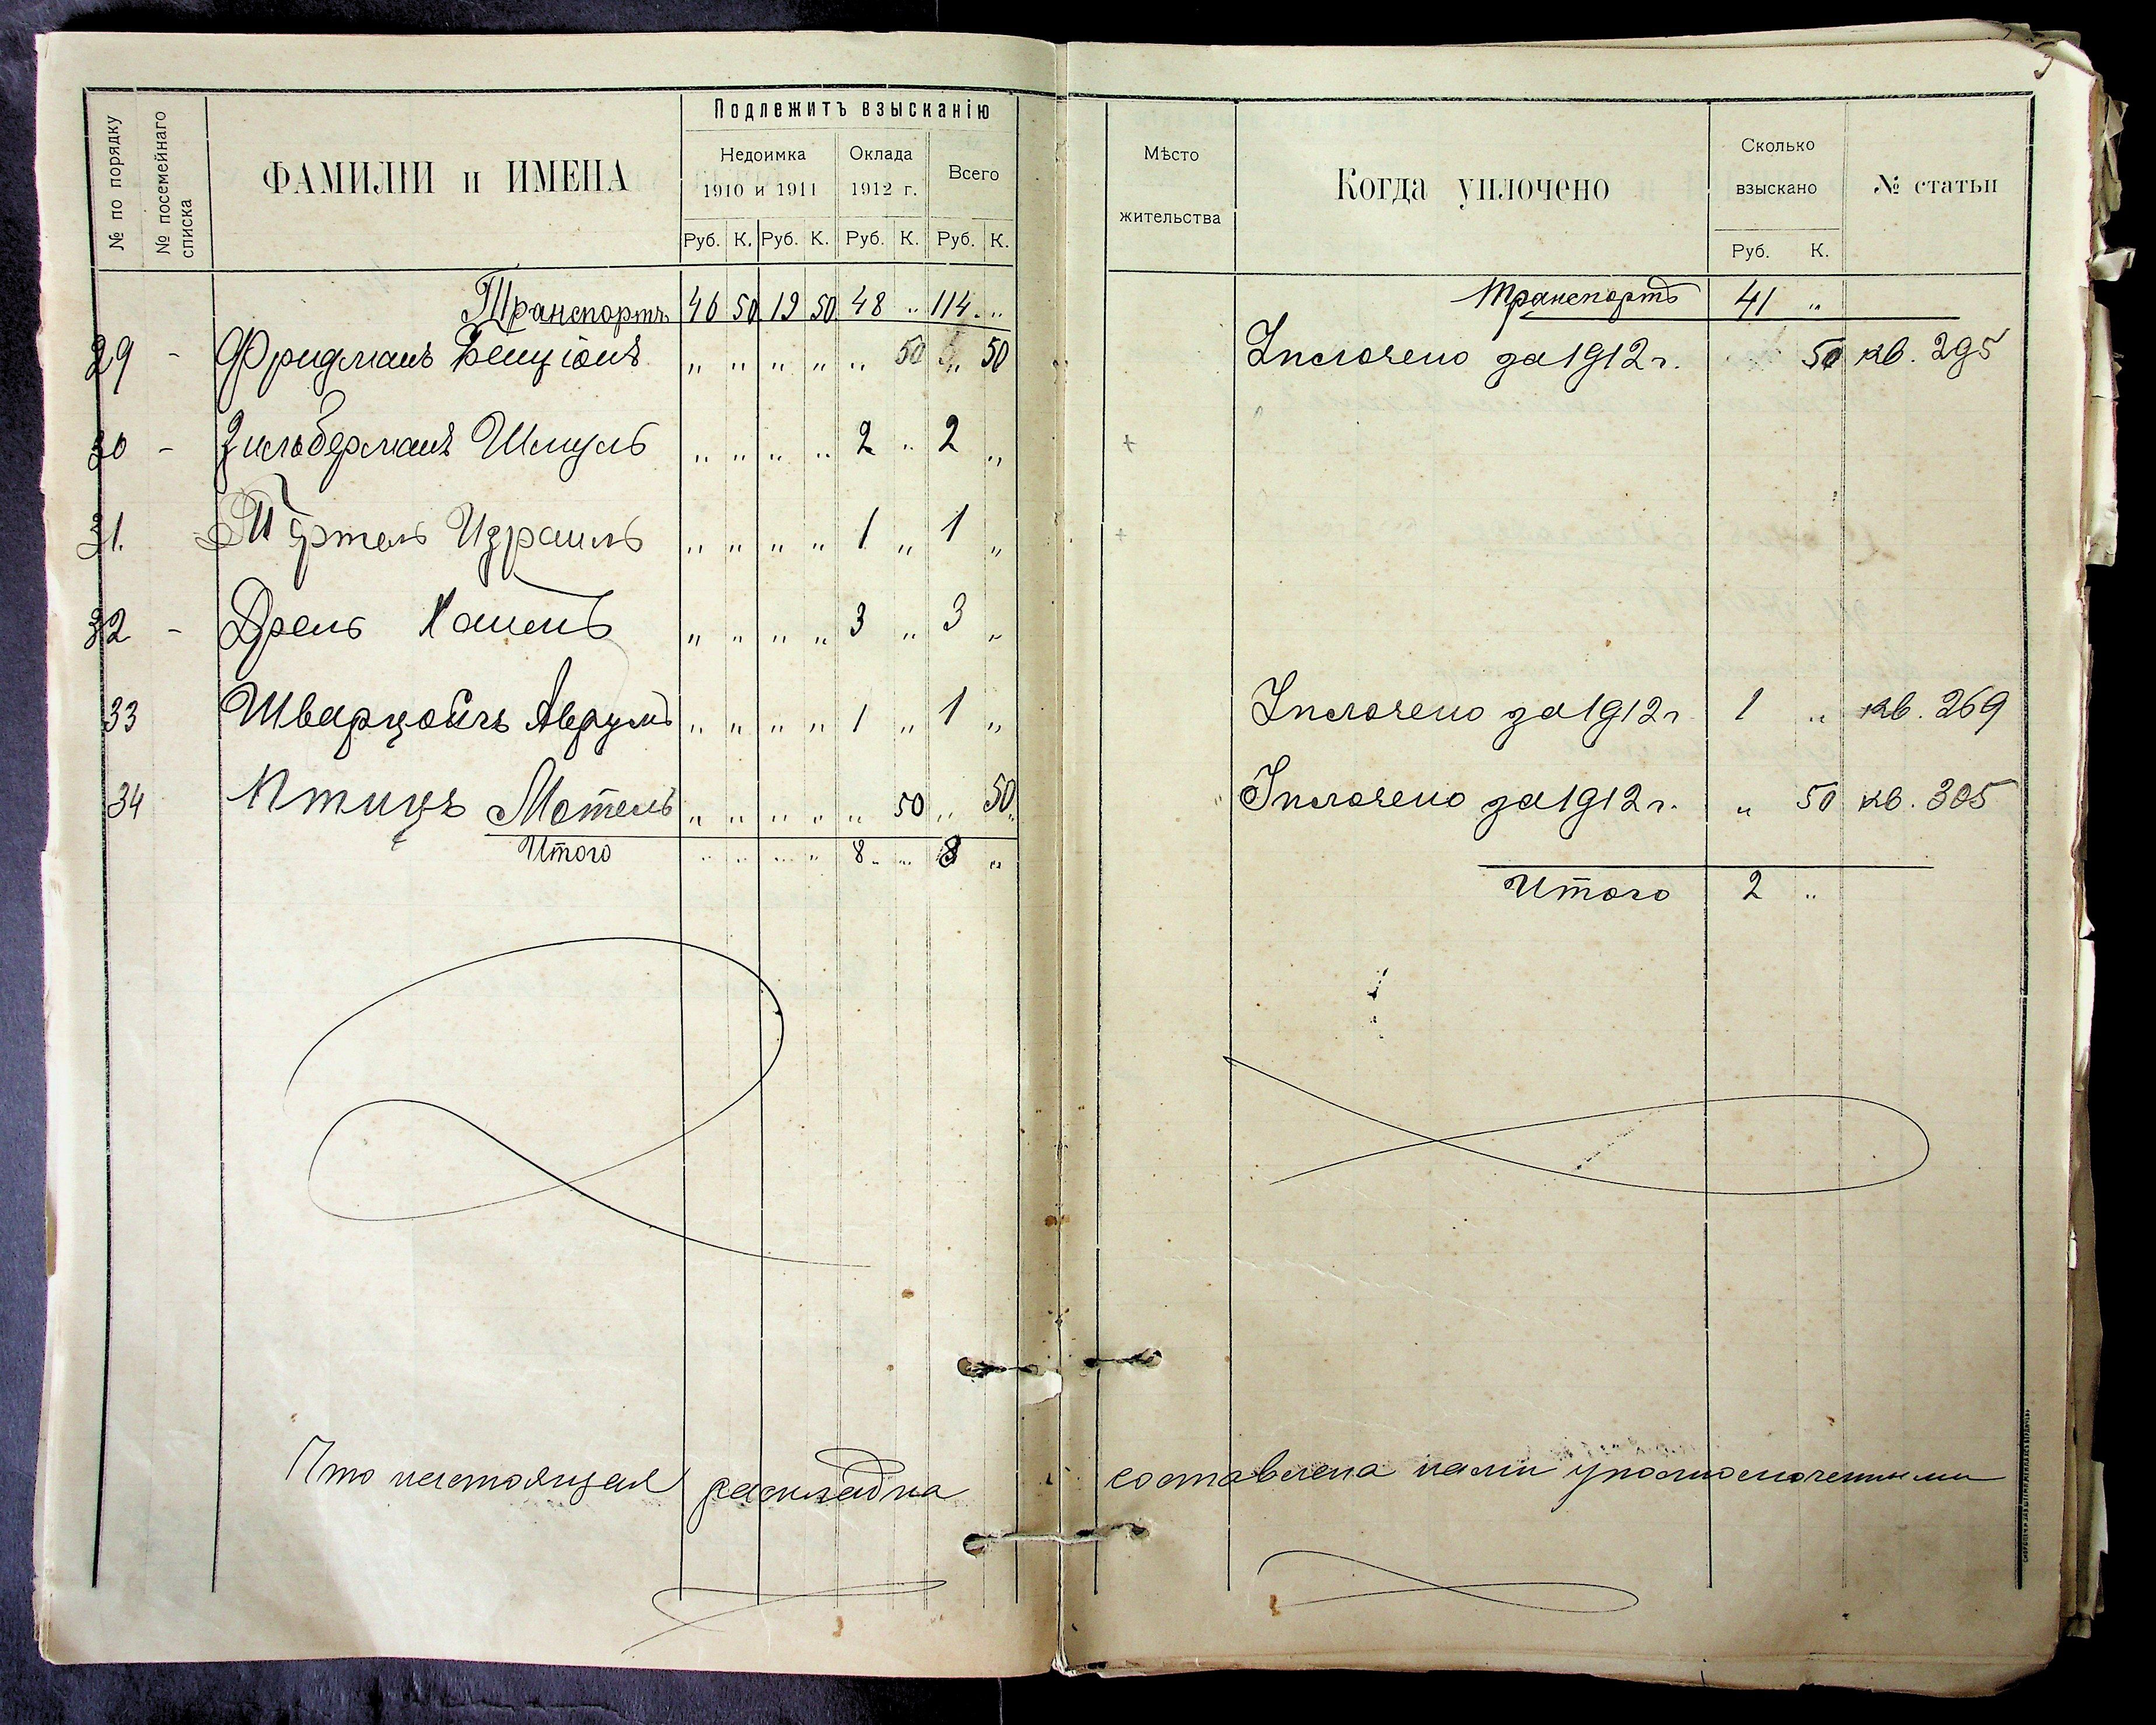 Подлежитъ взысканію
№ по порядку
№ посемейнаго списка
ФАМИЛІИ и ИМЕНА
Недоимка 1910 и 1911
Оклада 1912 г.
Всего
Руб. К. Руб. К. Руб. К. Руб. К.
Мѣсто жительства
Когда уплочено
Сколько взыскано
Руб. К.
№ статьи
Транспортъ 46 50 19 50 48 " 114 "
Транспортъ 41 "
29 - Фридманъ Бенціонъ " " " " " 50 " 50
Уплочено за 1912 г. 50 кв. 295
30 - Зильберманъ Шмуль " " " " 2 " 2 "
31. Израиль " " " " 1 " 1 "
32 - Дрель " " " " 3 " 3 "
33 Шварцойгъ Аврумъ " " " " 1 " 1 "
Уплочено за 1912 г 1 " кв. 269
34 Птицъ Мотель " " " " " 50 " 50
Уплочено за 1912 г. " 50 кв. 305
Итого " " " " 8 " 8 "
Итого 2 "
Что настоящая раскладка составлена нами уполномоченными